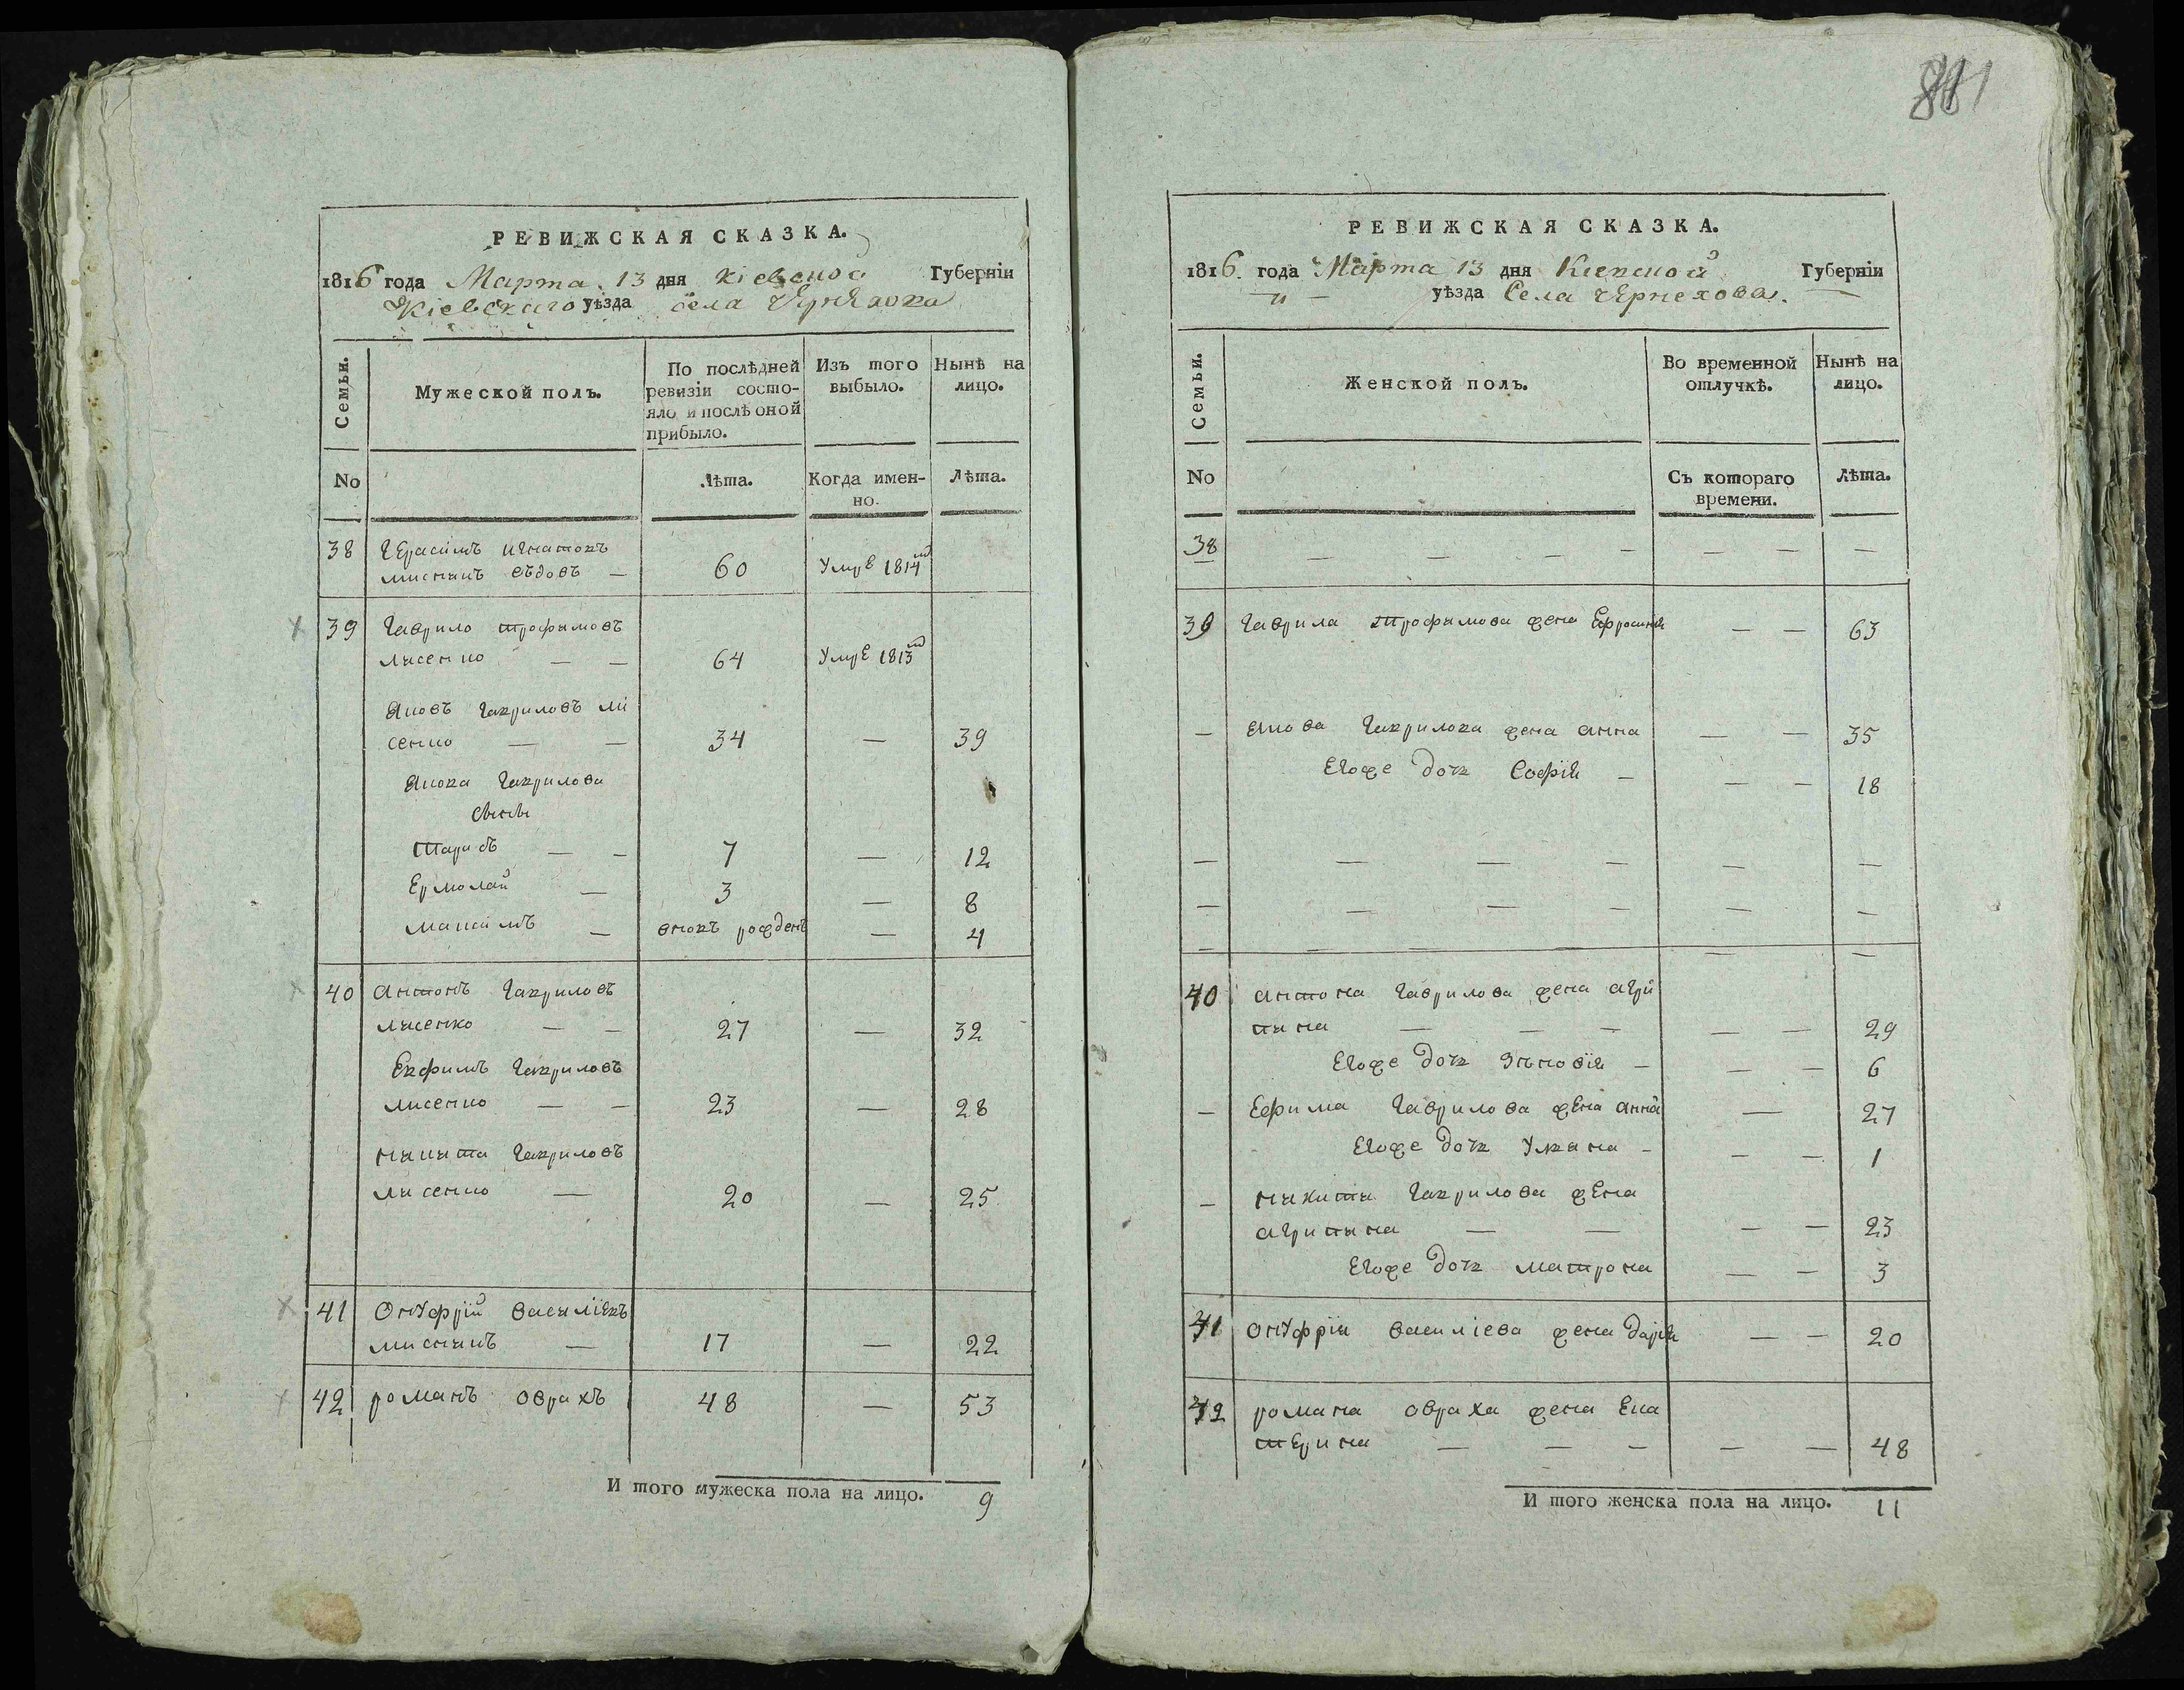 РЕВИЖСКАЯ СКАЗКА.
1816 года Марта 13 дня Кіевской Губерніи
Кіевскаго уѣзда села Чернехова
Семьи. Мужеской полъ. По послѣдней ревизіи состо- Изъ того Нынѣ на
яло и послѣ оной прибыло. выбыло. лицо.
No Лѣта. Когда имен- Лѣта.
но.
38 Герасимъ Игнатовъ
мисникъ вдовъ — 60 Умре 1814
39 Гаврило Трофимовъ
лисенко — — 64 Умре 1813
Яковъ Гавриловъ ли
сенко — — 34 — 39
Якова Гаврилова
сыны
Тарасъ — — 7 — 12
Ермолай — 3 — 8
максимъ — вновь рожденъ — 4
40 Антонъ Гавриловъ
лисенко — — 27 — 32
Евфимъ Гавриловъ
лисенко — — 23 — 28
никита Гавриловъ
лисенко — 20 — 25
41 Онуфрій василіевъ
мисникъ — 17 — 22
42 романъ оврахъ 48 — 53
И того мужеска пола на лицо. 9
881
РЕВИЖСКАЯ СКАЗКА.
1816. года Марта 13 дня Кіевской Губерніи
— уѣзда Села Чернехова. —
Семьи. Женской полъ. Во временной Нынѣ на
отлучкѣ. лицо.
No Съ котораго Лѣта.
времени.
38 — — — — — — —
39 Гаврила Трофимова жена Ефросинія — — 63
— Якова Гаврилова жена анна — — 35
Егоже дочь Софія — — — 18
— — — — — —
— — — — — —
— — —
40 антона Гаврилова жена агри
пина — — — — — 29
Егоже дочь Зѣновія — — — 6
— Ефима Гаврилова жена анна — 27
Егоже дочь Уляна — — — 1
— никиты Гаврилова жена
агрипина — — — — 23
Егоже дочь матрона — — 3
41 онуфрія василіева жена дарія — — 20
42 романа овраха жена Ека
терина — — — — — 48
И того женска пола на лицо. 11